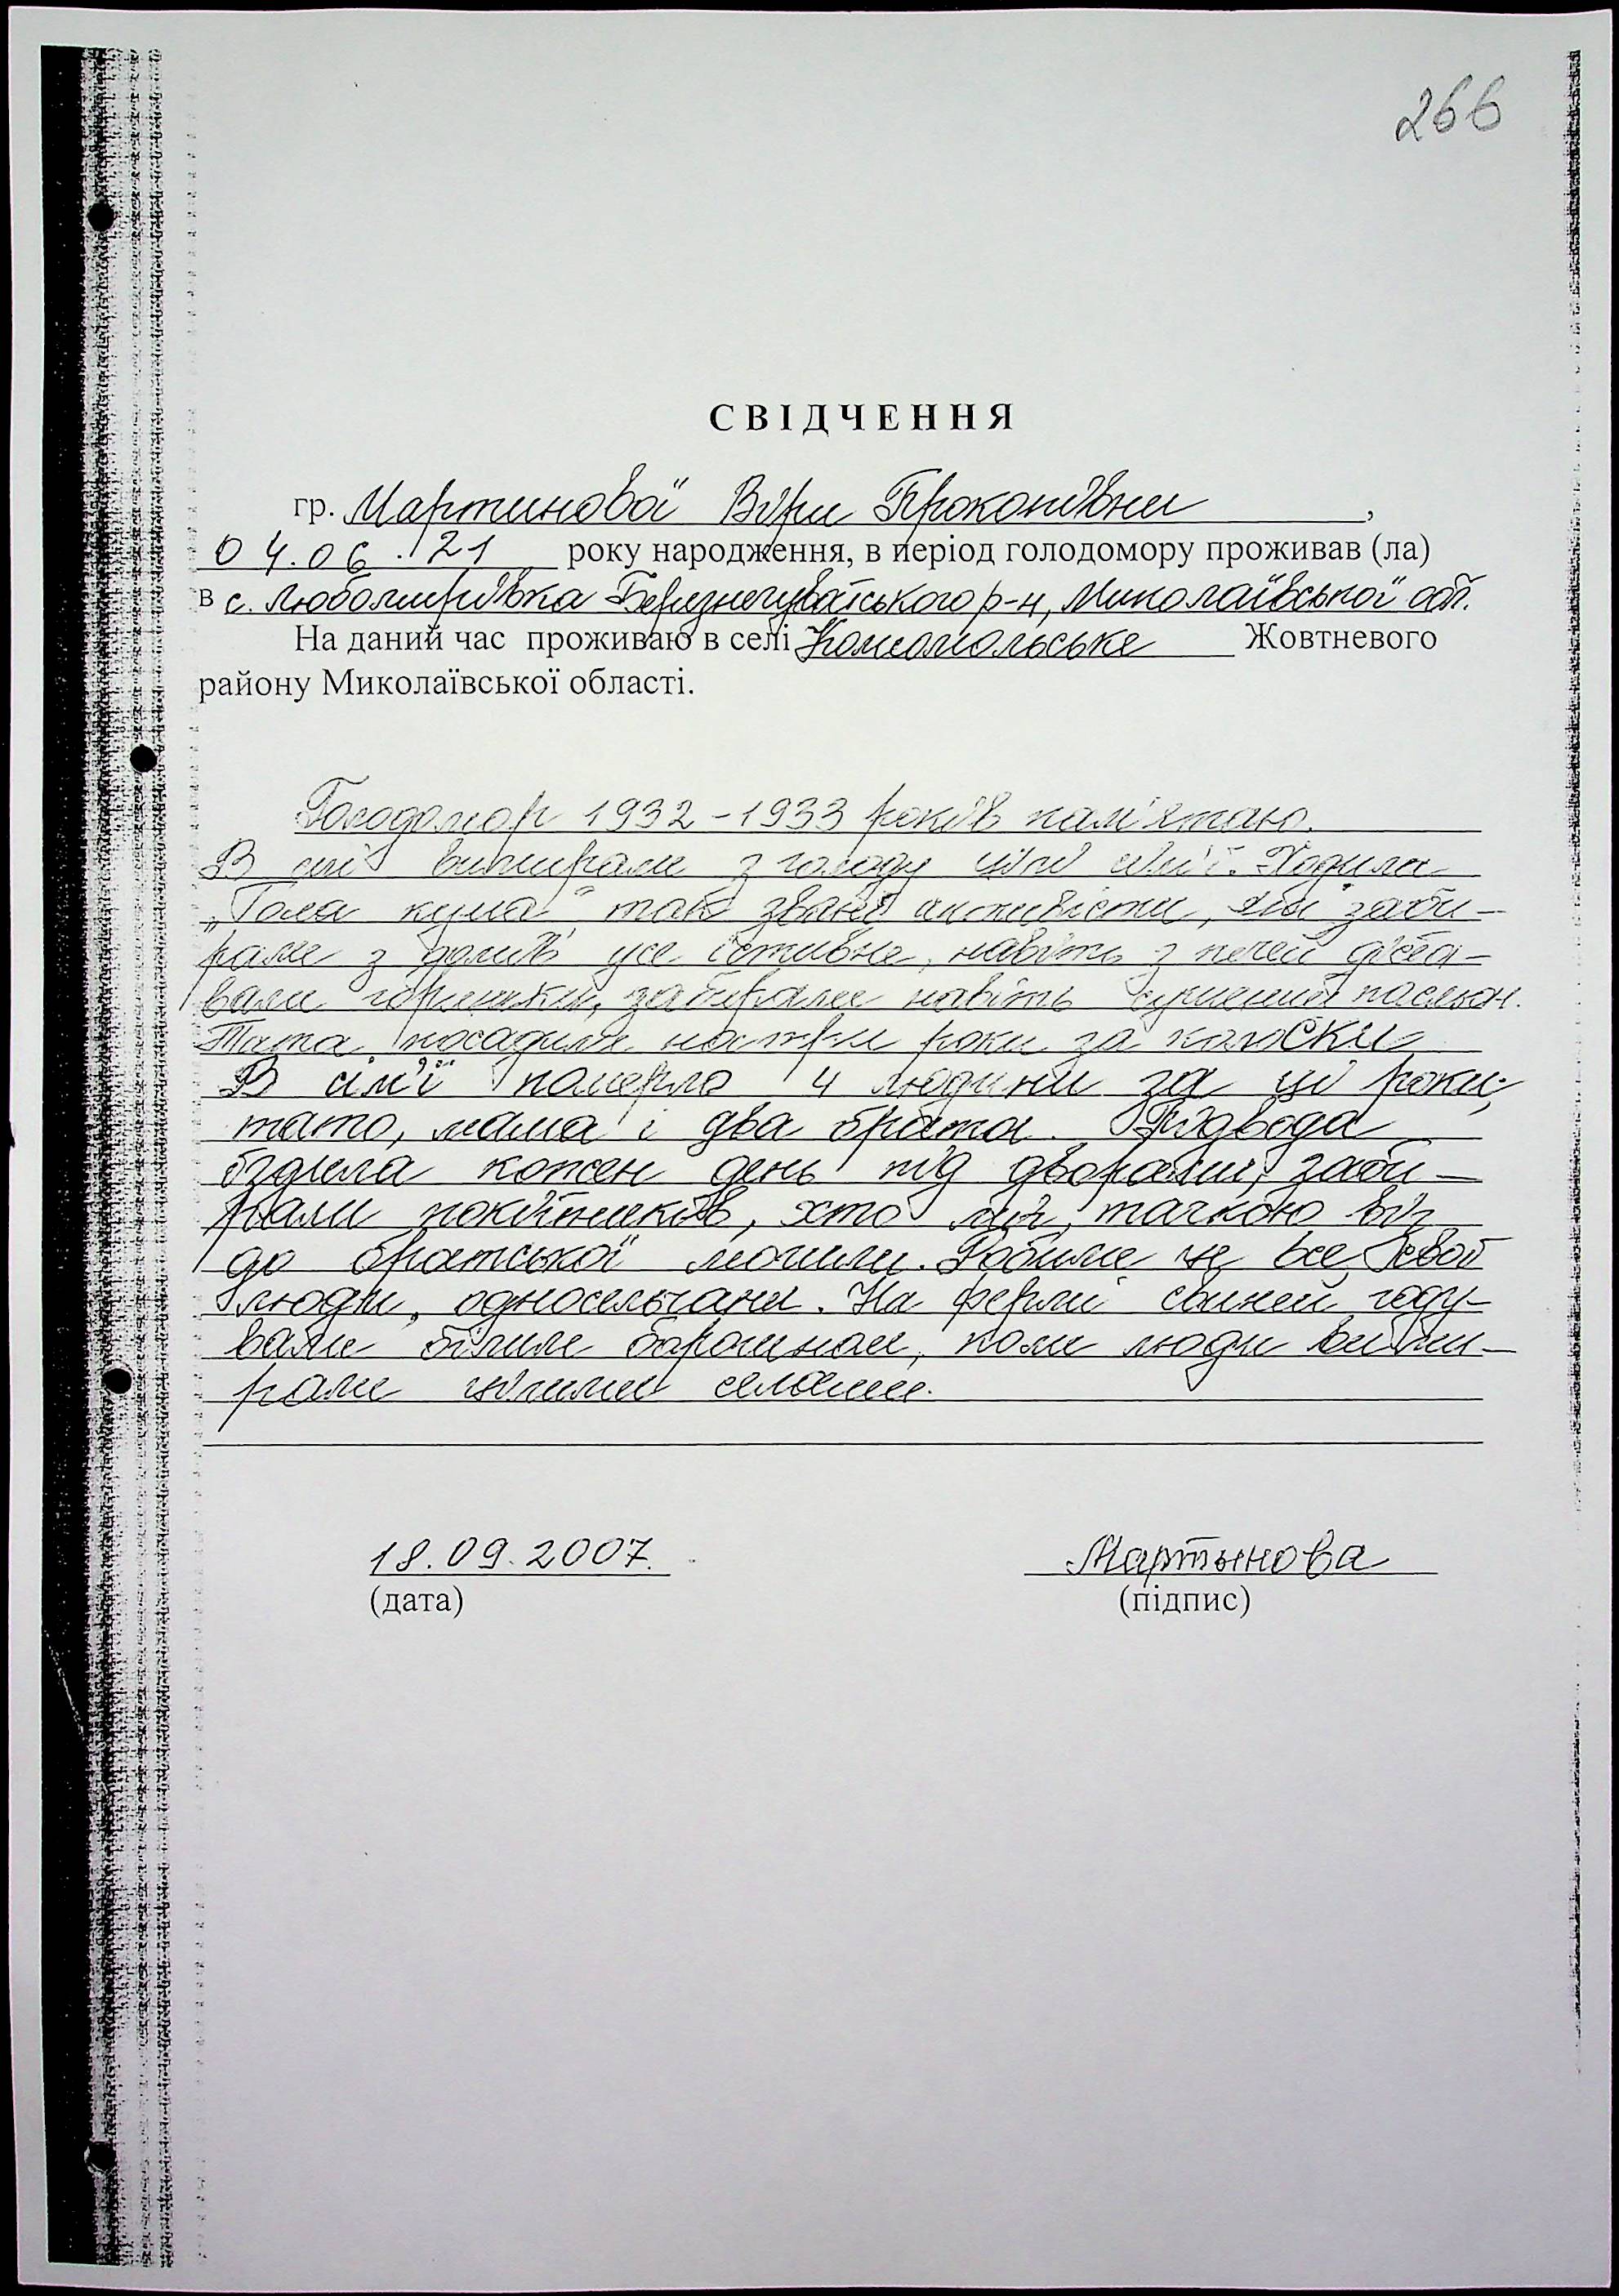 266
СВІДЧЕННЯ
гр. Мартинової Віри Прокопівни,
04.06.21 року народження, в період голодомору проживав (ла)
в с. Любомирівка Березнегуватського р-н, Миколаївської обл.
На даний час проживаю в селі Комсомольське Жовтневого
району Миколаївської області.
Голодомор 1932-1933 років пам'ятаю.
В селі вимирали з голоду цілі сім'ї. Ходила
„Гола кума", так звані активісти, які заби-
рали з домів усе їстивне, навіть з печей діста-
вали горшки, забирали навіть сушений пасльон.
Тата посадили на три роки за колоски
В сім'ї померло 4 людини за ці роки;
тато, мама і два брата. Підвода
їздила кожен день під дворами, заби-
рали покійників, хто міг, тачкою віз
до братської могили. Робили це все свої
люди, односельчани. На фермі свиней году-
вали білим борошном, коли люди вими-
рали цілими селами.
18.09.2007. Мартынова
(дата) (підпис)